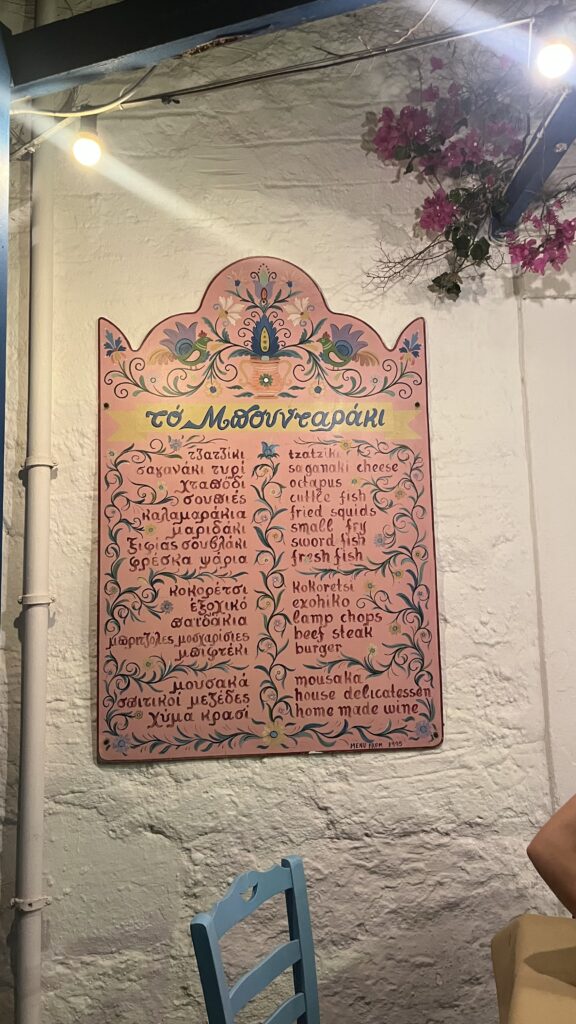 τό Μπουνταράκι
τζατζίκι tzatziki
σαγανάκι τυρί saganaki cheese
χταπόδι octapus
σουπιές cuttle fish
καλαμαράκια fried squids
μαριδάκι small fry
ξιφίας σουβλάκι sword fish
φρέσκα ψάρια fresh fish
κοκορέτσι kokoretsi
εξοχικό exohiko
παϊδάκια lamp chops
μπριτζόλες μοσχαρίσιες beef steak
μπιφτέκι burger
μουσακά mousaka
σπιτικοί μεζέδες house delicatessen
χύμα κρασί home made wine
MENU FROM 1995